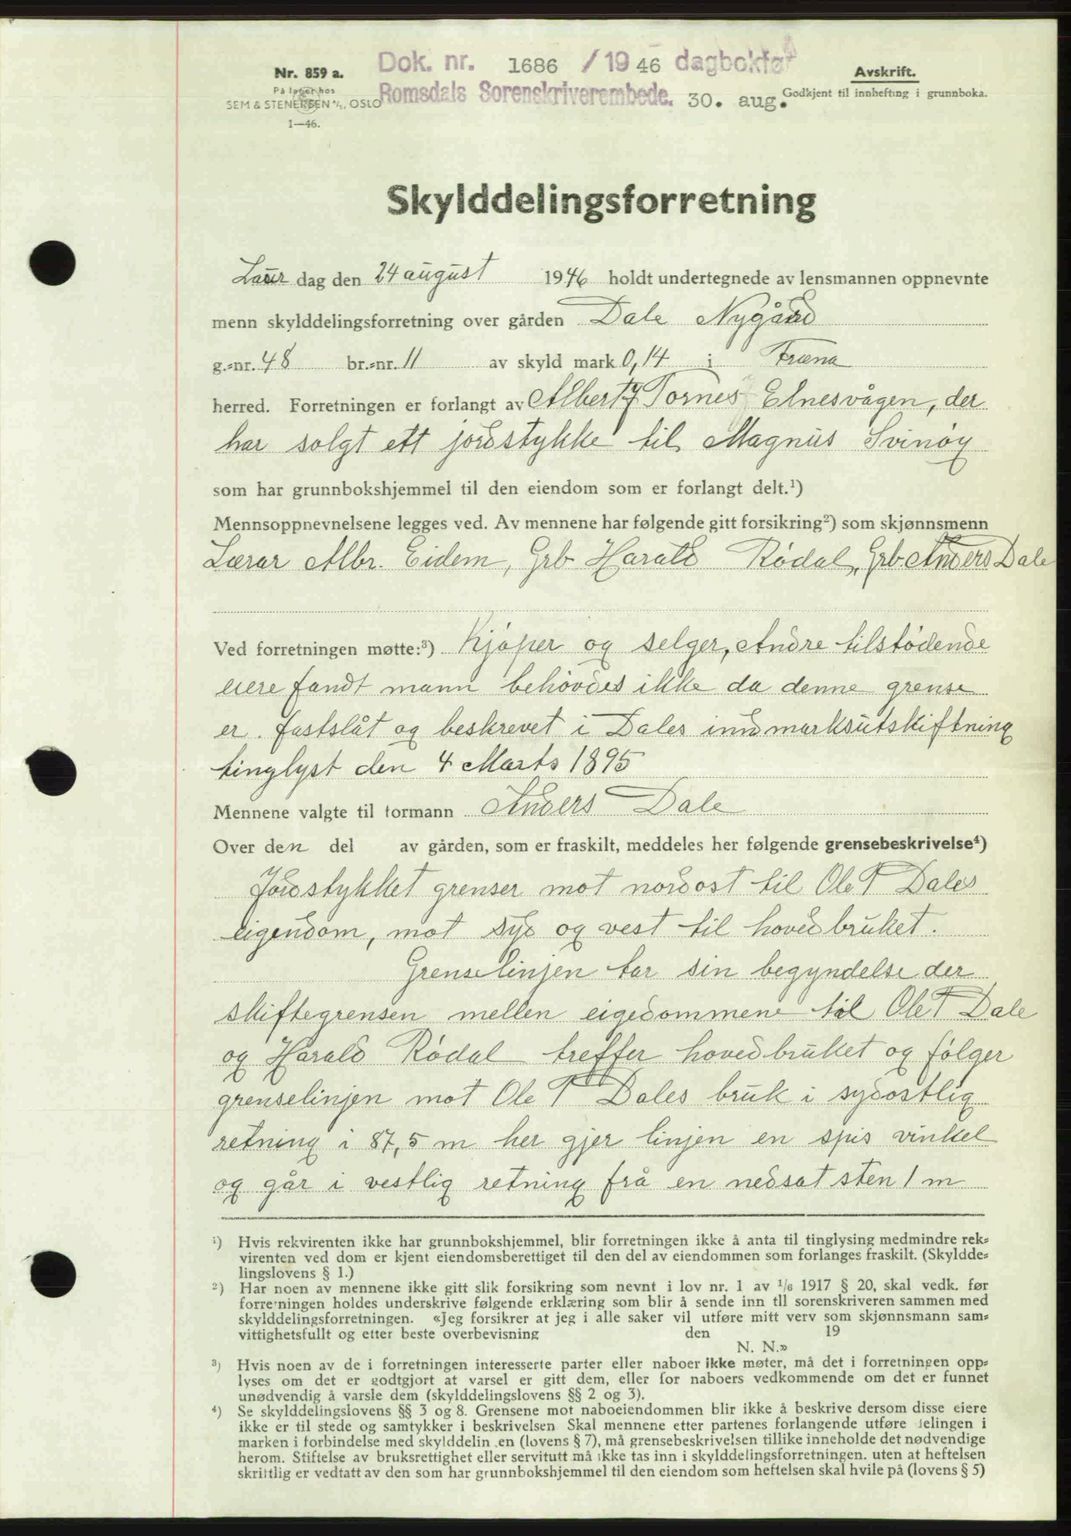 Nr. 859 a.
På lager hos
SEM & STENERSEN A/S, OSLO
1—46.
Dok. nr. 1686 / 1946 dagbokfør
Romsdals Sorenskriverembede. 30. aug.
Avskrift.
Godkjent til innhefting i grunnboka.
Skylddelingsforretning
Laur dag den 24 august 1946 holdt undertegnede av lensmannen oppnevnte
menn skylddelingsforretning over gården Dale Nygård
g.=nr. 48 br.=nr. 11 av skyld mark 0,14 i Fræna
herred. Forretningen er forlangt av Albert J Tornes Elnesvågen, der
har solgt ett jordstykke til Magnus Svinøy
som har grunnbokshjemmel til den eiendom som er forlangt delt.¹)
Mennsoppnevnelsene legges ved. Av mennene har følgende gitt forsikring²) som skjønnsmenn
Lærar Albr. Eidem, Grb Harald Rødal, Grb Anders Dale
Ved forretningen møtte:³) Kjøper og selger, Andre tilstødende
eiere fandt mann behøvdes ikke da denne grense
er fastslåt og beskrevet i Dales innmarksutskiftning
tinglyst den 4 Marts 1895
Mennene valgte til formann Anders Dale
Over den del av gården, som er fraskilt, meddeles her følgende grensebeskrivelse⁴)
Jordstykket grenser mot nordost til Ole T Dales
eigendom, mot syd og vest til hovedbruket.
Grenselinjen tar sin begyndelse der
skiftegrensen mellen eigedommene til Ole T Dale
og Harald Rødal treffer hovedbruket og følger
grenselinjen mot Ole T Dales bruk i sydostlig
retning i 87,5 m her gjer linjen en spis vinkel
og går i vestlig retning frå en nedsat sten 1 m
¹) Hvis rekvirenten ikke har grunnbokshjemmel, blir forretningen ikke å anta til tinglysing medmindre rek=
virenten ved dom er kjent eiendomsberettiget til den del av eiendommen som forlanges fraskilt. (Skyldde=
lingslovens § 1.)
²) Har noen av mennene ikke gitt slik forsikring som nevnt i lov nr. 1 av 1/6 1917 § 20, skal vedk. før
forretningen holdes underskrive følgende erklæring som blir å sende inn til sorenskriveren sammen med
skylddelingsforretningen. «Jeg forsikrer at jeg i alle saker vil utføre mitt verv som skjønnsmann sam=
vittighetsfullt og etter beste overbevisning den 19
N. N.»
³) Hvis noen av de i forretningen interesserte parter eller naboer ikke møter, må det i forretningen opp=
lyses om det er godtgjort at varsel er gitt dem, eller for naboers vedkommende om det er funnet
unødvendig å varsle dem (skylddelingslovens §§ 2 og 3).
⁴) Se skylddelingslovens §§ 3 og 8. Grensene mot naboeiendommen blir ikke å beskrive dersom disse eiere
ikke er til stede og samtykker i beskrivelsen Skal mennene etter partenes forlangende utføre delingen i
marken i forbindelse med skylddelingen (lovens § 7), må grensebeskrivelsen tillike inneholde det nødvendige
herom. Stiftelse av bruksrettighet eller servitutt må ikke tas inn i skylddelingsforretningen. uten at heftelsen
skriftlig er vedtatt av den som har grunnbokshjemmel til den eiendom som heftelsen skal hvile på (lovens § 5)